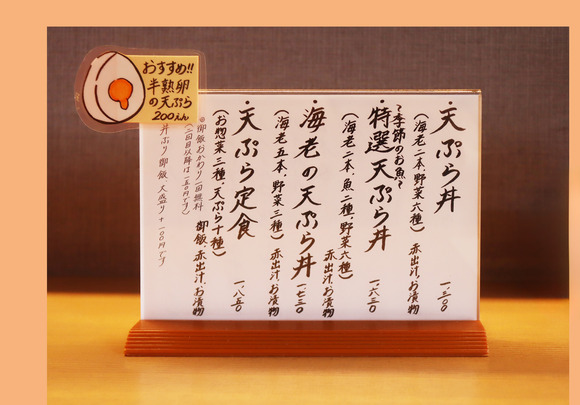 おすすめ!!
半熟卵
の天ぷら
200えん
・天ぷら丼
(海老二本、野菜六種) 赤出汁、お漬物
~季節のお魚~
・特選天ぷら丼 一、六三〇
(海老二本、魚二種、野菜六種) 赤出汁、お漬物
・海老の天ぷら丼 一、七三〇
(海老五本、野菜三種) 赤出汁、お漬物
・天ぷら定食 一、八五〇
(お惣菜三種、天ぷら十種) 御飯、赤出汁、お漬物
※御飯おかわり一回無料
(二回目以降は一五〇円です)
丼ぶり/御飯 大盛り+一〇〇円です